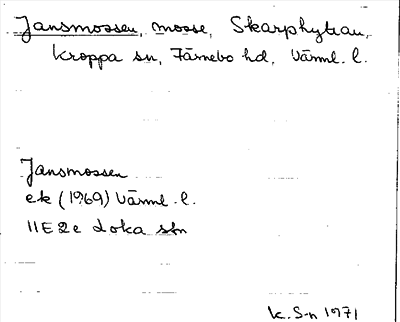 Jansmossen, mosse, Skarphyttan,
Kroppa sn, Färnebo hd, Värml. l.
Jansmossen
ek (1969) Värml. l.
11E 2e Loka stn
K. S-n 1971